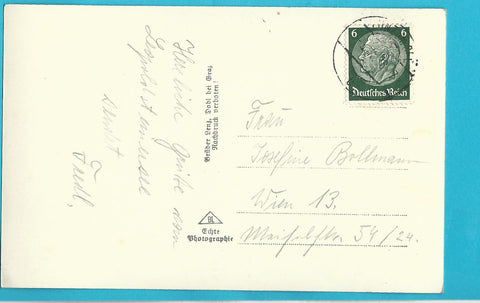 Herzliche Grüße vom
Leopoldsteinersee
sendet
Friedl,
Brüder Lenz, Dobl bei Graz
Nachdruck verboten!
Echte
Photographie
6 6
Deutsches Reich
Frau
Josefine Bollmann
Wien 13.
54/24.